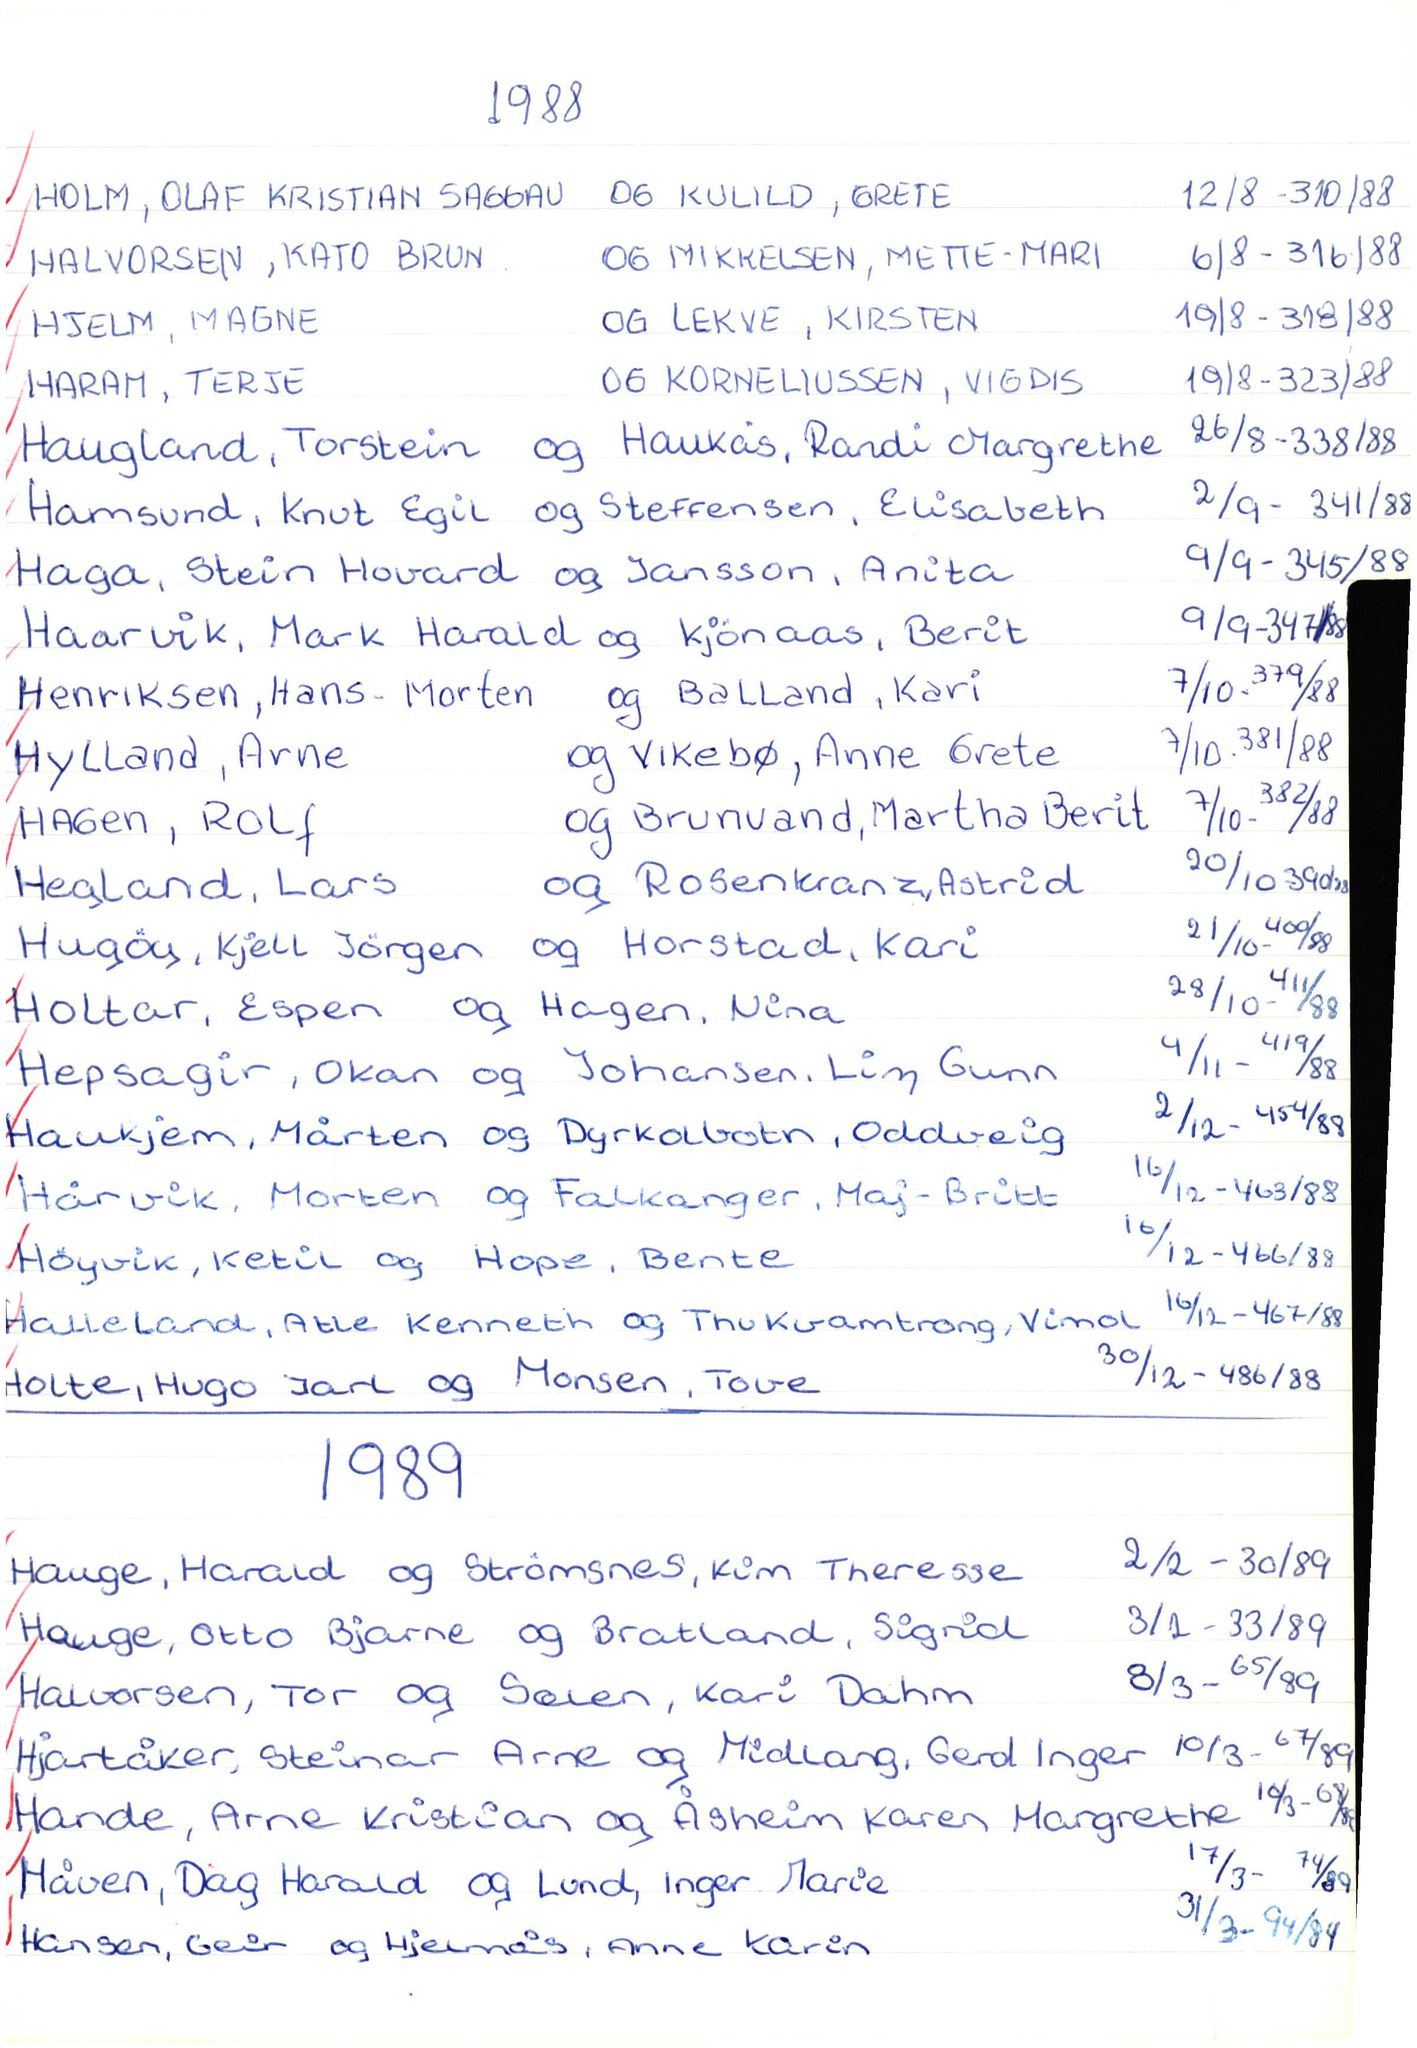 1988
HOLM, OLAF KRISTIAN SAGGAU OG KULILD, GRETE 12/8 - 310/88
HALVORSEN, KATO BRUN OG MIKKELSEN, METTE-MARI 6/8 - 316/88
HJELM, MAGNE OG LEKVE, KIRSTEN 19/8 - 318/88
HARAM, TERJE OG KORNELIUSSEN, VIGDIS 19/8 - 323/88
Haugland, Torstein og Haukås, Randi Margrethe 26/8 - 338/88
Hamsund, Knut Egil og Steffensen, Elisabeth 2/9 - 341/88
Haga, Stein Hovard og Jansson, Anita 9/9 - 345/88
Haarvik, Mark Harald og Kjönaas, Berit 9/9 - 347/88
Henriksen, Hans-Morten og Balland, Kari 7/10 - 379/88
Hylland, Arne og Vikebø, Anne Grete 7/10 - 381/88
HAGen, ROLf og Brunvand, Martha Berit 7/10 - 382/88
Hegland, Lars og Rosenkranz, Astrid 20/10 390/88
Hugöy, Kjell Jörgen og Horstad, Kari 21/10 - 400/88
Holtar, Espen og Hagen, Nina 28/10 - 411/88
Hepsagir, Okan og Johansen, Gunn 4/11 - 419/88
Haukjem, Mårten og Dyrkolbotn, Oddveig 2/12 - 454/88
Hårvik, Morten og Falkanger, Maj-Britt 16/12 - 463/88
Höyvik, Ketil og Hope, Bente 16/12 - 466/88
Halleland, Atle Kenneth og Thukvamtrong, Vimol 16/12 - 467/88
Holte, Hugo Jarl og Monsen, Tove 30/12 - 486/88
1989
Hauge, Harald og Strömsnes, Kim Theresse 2/2 - 30/89
Hauge, Otto Bjarne og Bratland, Sigrid 3/2 - 33/89
Halvorsen, Tor og Sælen, Kari Dahm 8/3 - 65/89
Hjartåker, Steinar Arne og Midlang, Gerd Inger 10/3 - 67/89
Hande, Arne Kristian og Åsheim Karen Margrethe 10/3 - 68/89
Håven, Dag Harald og Lund, Inger Marie 17/3 - 74/89
Hansen, Geir og Hjelmås, Anne Karin 31/3 - 94/89